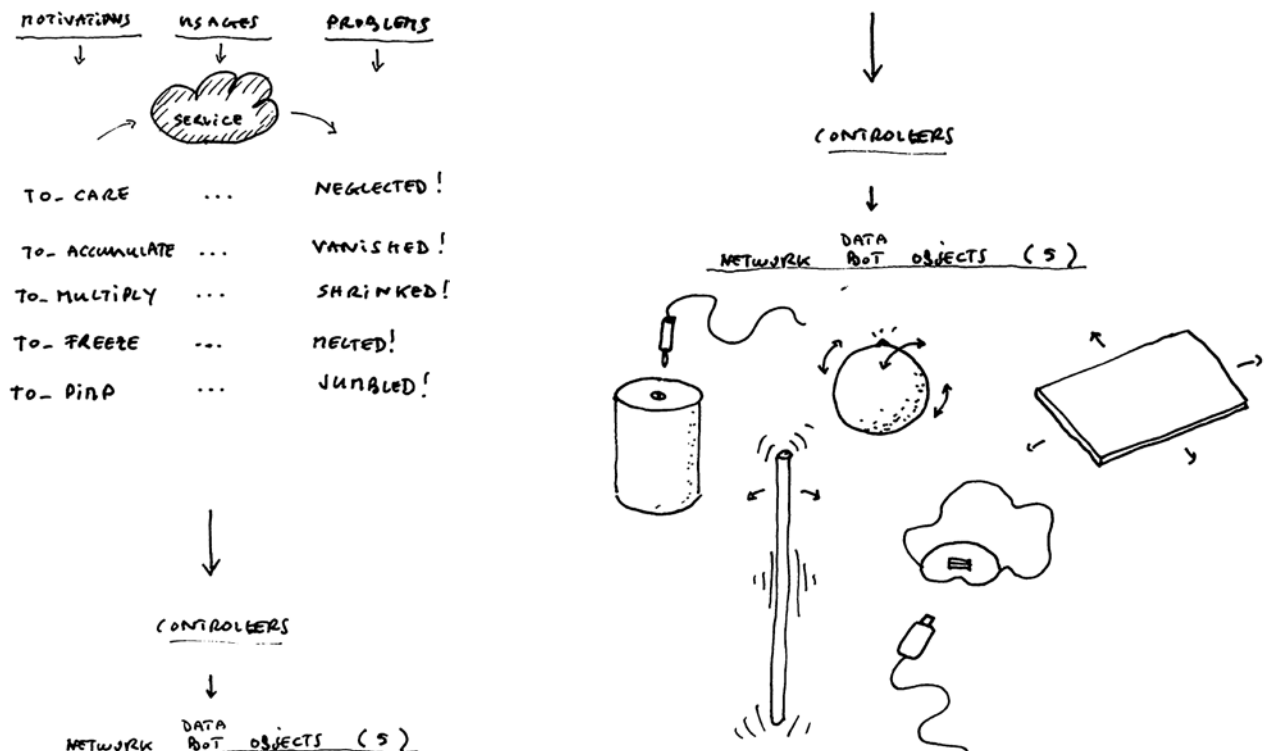 MOTIVATIONS USAGES PROBLEMS
SERVICE
TO_ CARE ... NEGLECTED!
TO_ ACCUMULATE ... VANISHED!
TO_ MULTIPLY ... SHRINKED!
TO_ FREEZE ... MELTED!
TO_ PIMP ... JUMBLED!
CONTROLLERS
DATA
NETWORK BOT OBJECTS (5)
CONTROLLERS
DATA
NETWORK BOT OBJECTS (5)